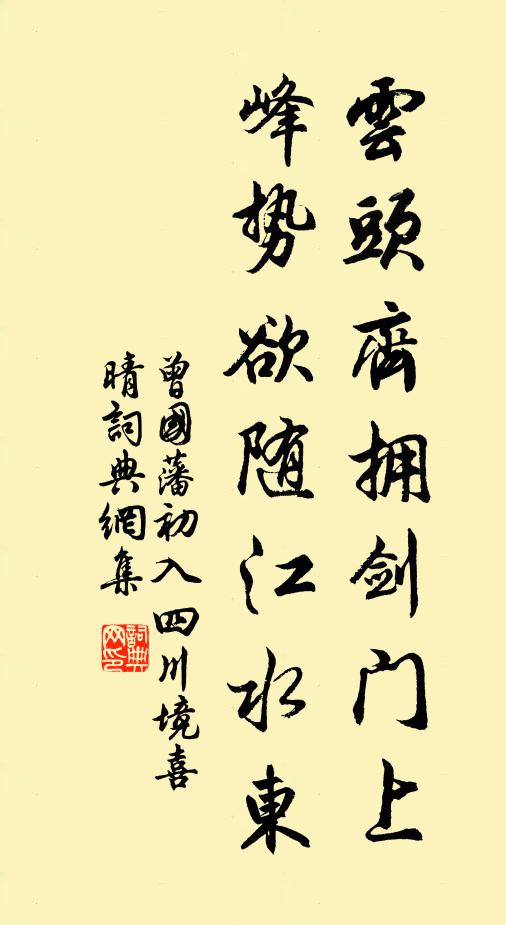 雲頭齊拥劍门上
峰势欲随江水東
曾國藩初入四川境喜
晴詞典網集
詞典
网印